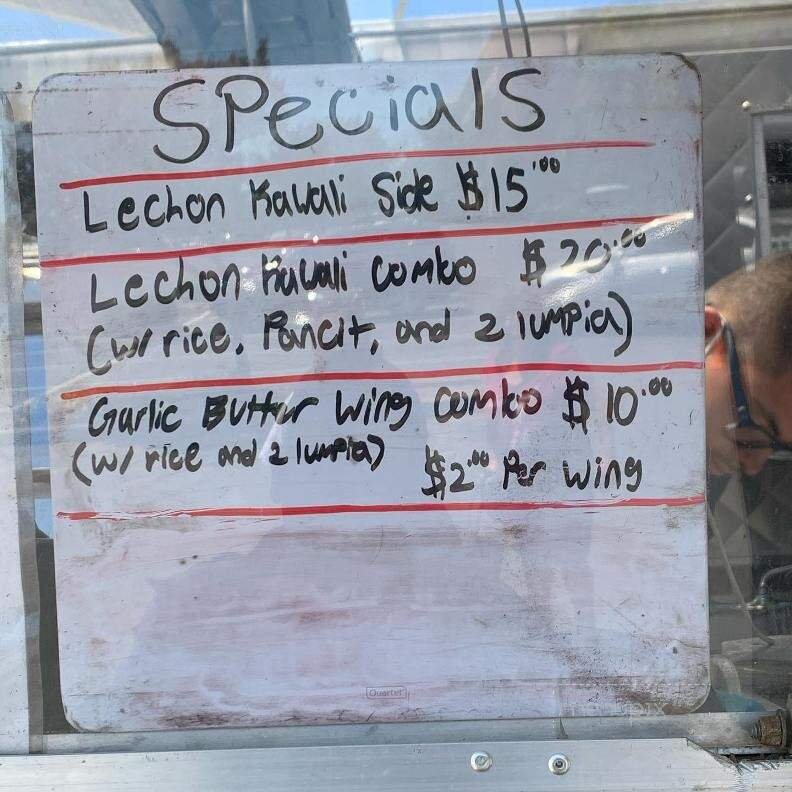 Specials
Lechon Kawali Side $15.00
Lechon Kawali Combo $20.00
(w/ rice, Pancit, and 2 lumpia)
Garlic Butter Wing Combo $10.00
(w/ rice and 2 lumpia) $2.00 Per wing
Quartet